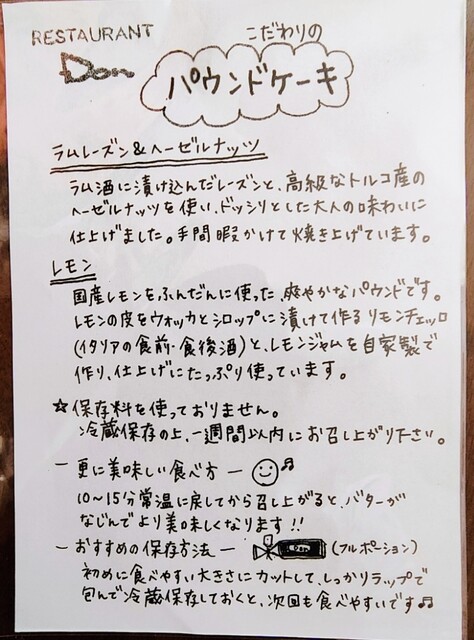 RESTAURANT
Don
こだわりの
パウンドケーキ
ラムレーズン&ヘーゼルナッツ
ラム酒に漬け込んだレーズンと、高級なトルコ産の
ヘーゼルナッツを使い、ドッシリとした大人の味わいに
仕上げました。手間暇かけて焼き上げています。
レモン
国産レモンをふんだんに使った、爽やかなパウンドです。
レモンの皮をウォッカとシロップに漬けて作るリモンチェッロ
(イタリアの食前・食後酒)と、レモンジャムを自家製で
作り、仕上げにたっぷり使っています。
☆保存料を使っておりません。
冷蔵保存の上、一週間以内にお召し上がり下さい。
ー更に美味しい食べ方ー
10〜15分常温に戻してから召し上がると、バターが
なじんでより美味しくなります!!
ーおすすめの保存方法ー Don (フルポーション)
初めに食べやすい大きさにカットして、しっかりラップで
包んで冷蔵保存しておくと、次回も食べやすいです♬